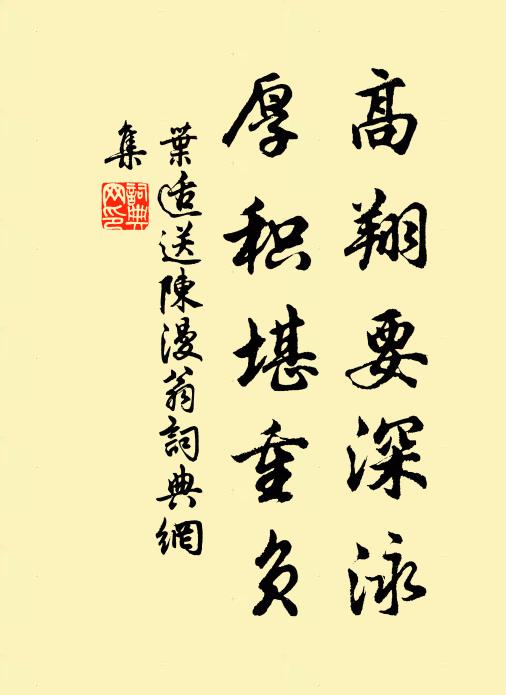 高翔要深泳
厚积堪重负
葉适送陳漫翁詞典網
集
詞典网印